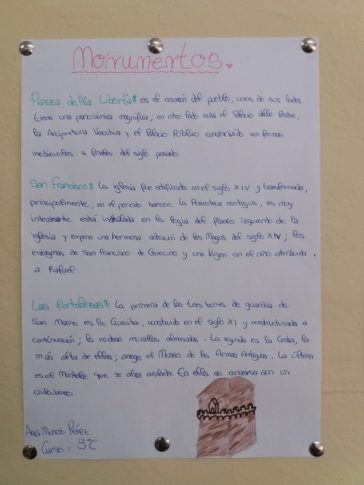 Monumentos.
Piazza della Libertà: es el corazón del pueblo, unos de sus lados
tiene una panorámica magnífica; en otro lado está el Palacio delle Poste,
la Arcipretura Vecchia y el Palacio Público construido con formas
medievales a finales del siglo pasado.
San Francisco: La iglesia fue edificada en el siglo XIV y transformada,
principalmente, en el periodo barroco. La Pinacoteca contigua, es muy
interesante está instalada en la logia del flanco izquierdo de la
iglesia y expone una hermosa adoración de los Magos del siglo XIV; los
estigmas de San Francisco de Guercino y una Virgen con el niño atribuida
a Rafael.
Las fortalezas: La primera de las tres torres de guardia de
San Marino es la Guaita, construida en el siglo XI y reestructurada a
continuación; la rodean murallas almenadas. La segunda es la Cesta, la
más alta de ellas; acoge el Museo de las Armas Antiguas. La última
es el Montale que se alza aislada. En ella se conserva aún un
calabozo.
Ana Muñoz Pérez
Curso: 3ºC